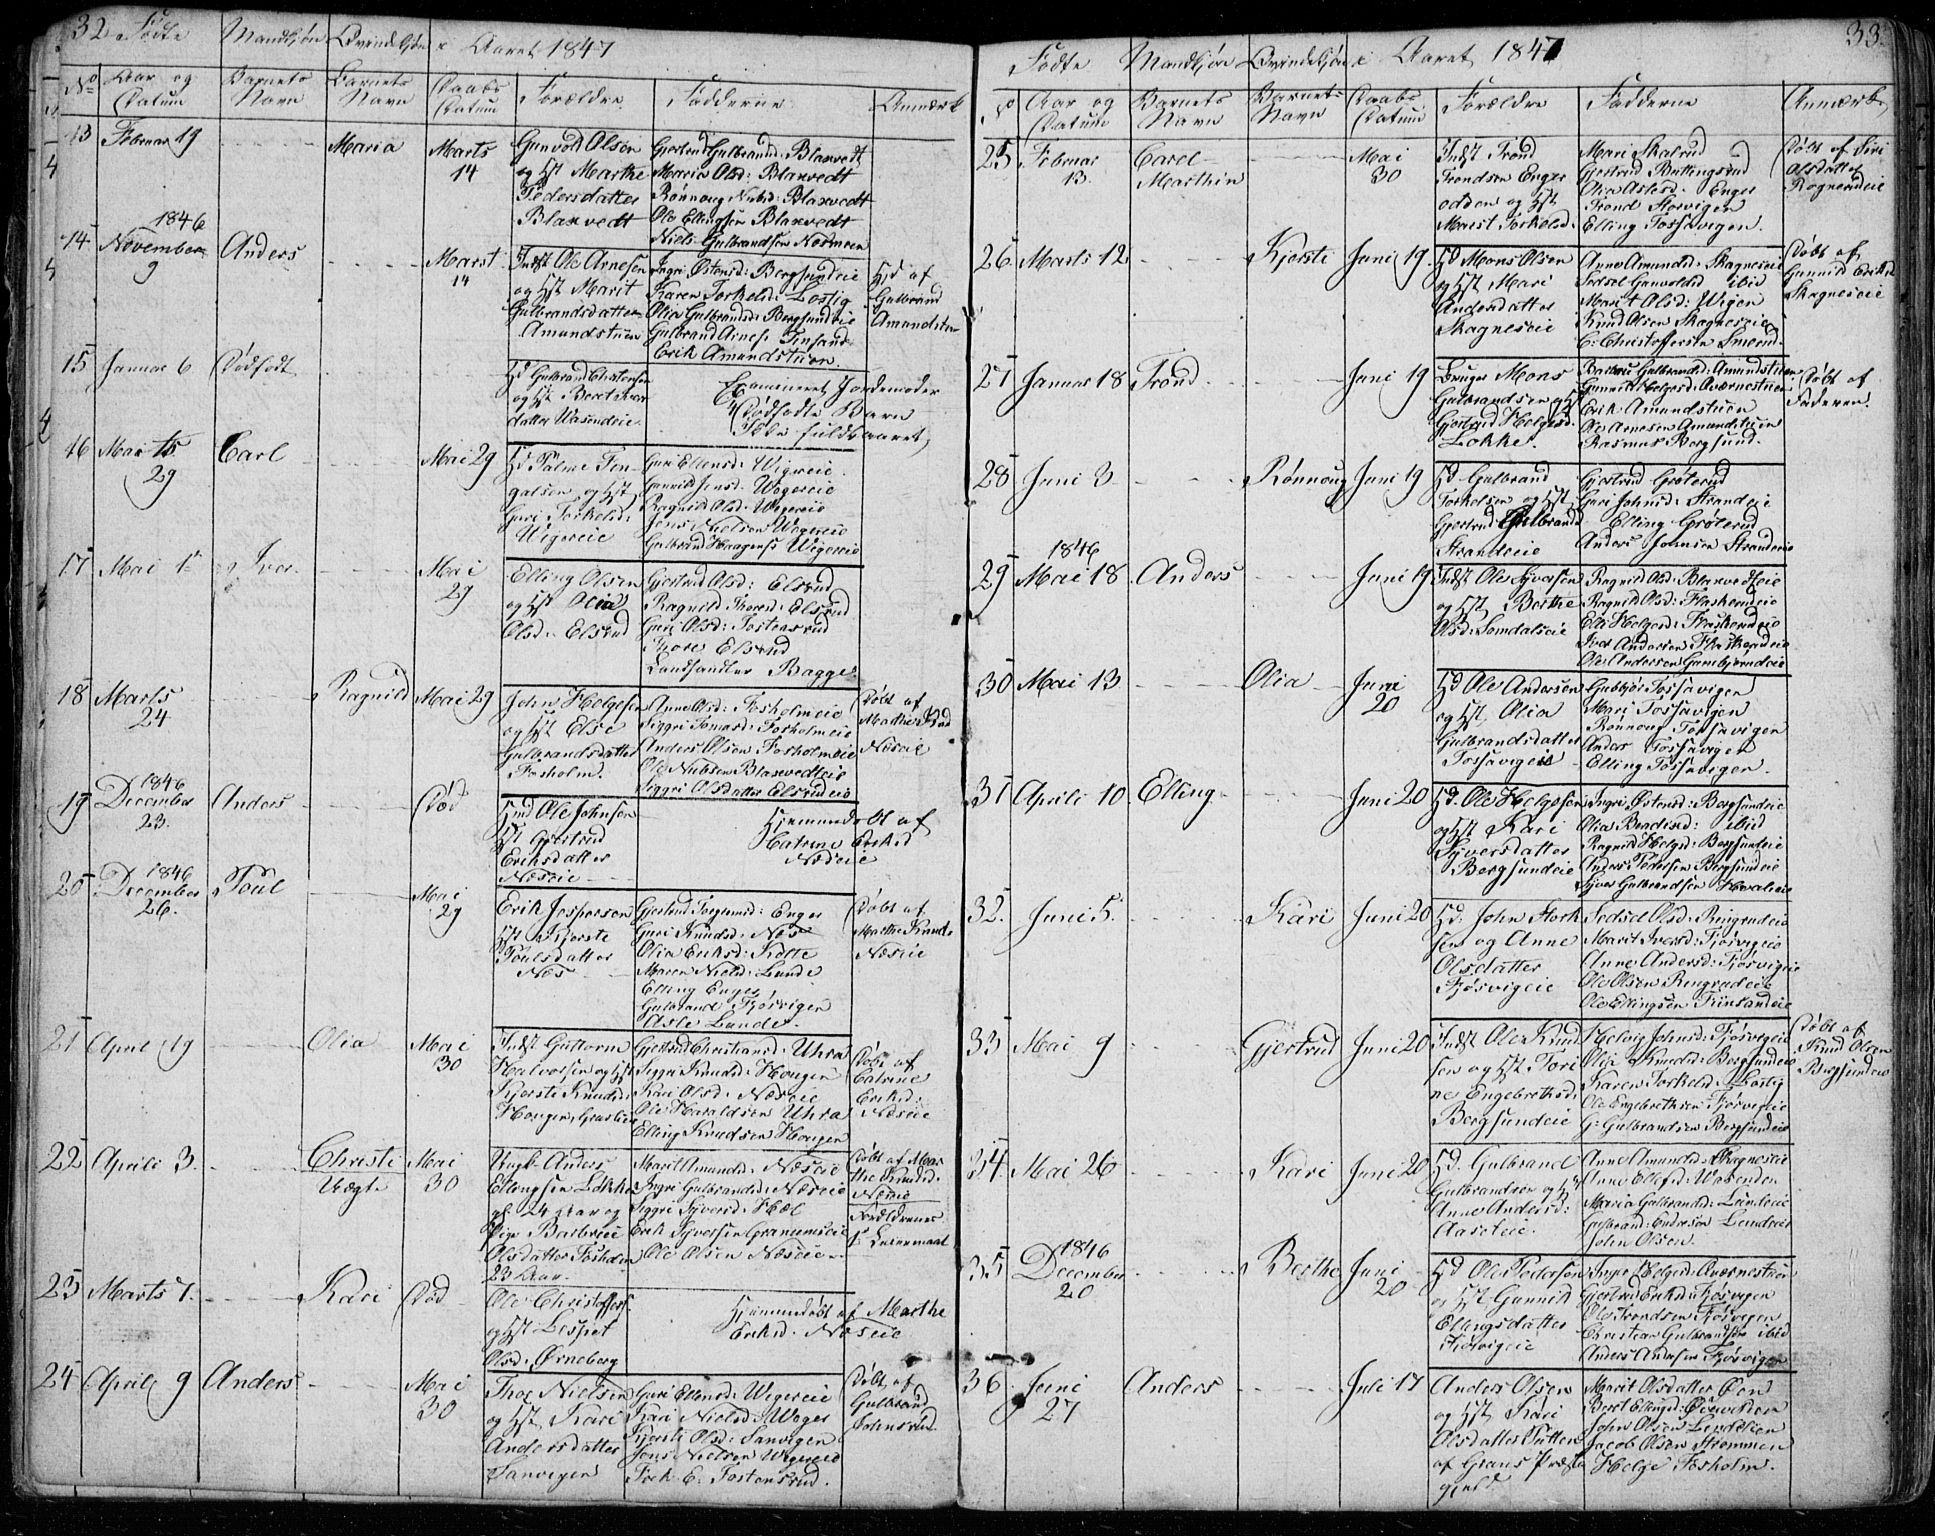 32 Fødte Mandkjøn Qvindekjøn i Aaret 1847
No Aar og Datum Barnets Navn Barnets Navn Daabs Datum Forældre Fadderne Anmærk
13 Februar 19 Maria Marts 14
Gunvold Olsen
og Hst Marthe
Pedersdatter
Blaxvedt
Gjertrud Gulbrandsd: Blaxvedt
Maria Olsd: Blaxvedt
Rønnoug Nubsd: Blaxvedt
Ole Ellingsen Blaxvedt
Niels Gulbrandsen Næsmoen
14 1846 November 9 Anders Marst 14
Indst Ole Arnesen
og Hst Marit
Gulbrandsdatter
Amundstuen
Ingri Østensd: Bergsundeie
Karen Torkelsd:
Olia Gulbrandsd: Bergsundeie
Gulbrand Arnes:
Erik Amundstuen
Hd af
Gulbrand
Amundstuen
15 Januar 6 Dødfødt
Hd Gulbrand Christensen
og Hst Beret Iver
datter Wasendeie
Examineret Jordemoder
Dødfødte Barn
Ikke fuldbaaret
16 Mai 29 Carl Mai 29
Hd Palme Ten
galsen og Hst
Guri Torkelsd:
Wigereie
Guri Ellensd: Wigereie
Gunnild Jensd: Wegereie
Ragnild Olsd: Wegereie
Jens Nielsen Wegereie
Gulbrand Haagens Wigereie
17 Mai 1 Iver Mai 29
Elling Olsen
og Hst Olia
Olsd: Elsrud
Gjertrud Olsd: Elsrud
Ragnild Thoresd: Elsrud
Guri Olsd: Tostensrud
Thore Elsrud
Landhandler Bagge
18 Marts 24 Ragnild Mai 29
John Helgesen
og Hst Else
Gulbrandsdatter
Fosholm
Anne Olsd: Fosholmeie
Siggri Tomasd: Fosholmeie
Anders Olsen Fosholmeie
Ole Nubsen Blaxvedteie
Siggri Olsdatter Elsrudeie
Døbt af
Næseie
19 1846 December 23 Anders Død
Hmd Ole Johnsen
Hst Gjertrud
Eriksdatter
Næseie
Hjemmedøbt af
Katrine Eriksd
Næseie
20 1846 December 26 Poul Mai 29
Erik Jespersen
Hst Kjerste
Poulsdatter
Næs
Gjertrud Torgiersd: Enger
Guri Knudsd: Næs
Olia Eriksd:
Maren Nielsd: Lunde
Elling Enger
Gulbrand Fjøsvigen
Asle Lunde
Døbt af
Marthe Knuds
Næseie
21 April 19 Olia Mai 30
Indst Guttorm
Halvorsen og Hst
Kjersti Knudsd:
Haugen,
Gjertrud Christiansd: Uhra
Siggri Knudsd: Haugen
Kari Olsd: Næseie
Ole Haraldsen Uhra
Elling Knudsen Haugen
Døbt af
Catrine
Eriksd:
Næseie
22 Aprili 3 Christi Uægte Mai 30
Ungk Anders
Ellingsen Løkke
gl: 24 Aar og
Pige Barbroe
Olsdatter Fosholm
23 Aar
Marit Amundsd: Næseie
Ingri Gulbrandsd: Næseie
Siggri Syversd: Hæl
Erik Syversen Granumseie
Ole Olsen Næseie
Døbt af Mar
the Knudsd:
Næseie
Forældrenes
1ste Leiermaal
23 Marts 7 Kari Død
Ole Christoffers:
og Hst Lespet
Olsd: Ørneberg
Hjemmedøbt af Marthe
Eriksd: Næseie
24 Aprili 9 Anders Mai 30
Thor Nielsen
og Hst Kari
Andersdatter
Sanvigen
Guri Ellensd: Wigereie
Kari Nielsd: Weger
Kjersti Olsd: Sanvigen
Jens Nielsen Wigereie
Erik C: Tostensrud
Døbt af
Gulbrand
Johnsrud
33
Fødte Mandkjøn Qvindekjøn i Aaret 1847
No Aar og Datum Barnets Navn Barnets Navn Daabs Datum Forældre Fadderne Anmærk
25 Februar 13 Carel Marthin Mai 30
Indst Trond
Trondsen Enger
odden og Hst
Marit Torkelsd:
Mari Skalrud
Gjertrud Buttingsrud
Olia Aslesd: Enger
Trond Storvigen
Elling Fossavigen
Døbt af Siri
Olsdatter
Rognerudeie
26 Marts 12 Kjersti Juni 19
Hd Mons Olsen
og Hst Mari
Andersdatter
Skagneseie
Anne Amundsd: Skagneseie
Sedsel Gunvoldsd ibid
Marit Olsd: Wigen
Knud Olsen Skagneseie
C: Christoffersen Smerud
Døbt af
Gunnild Eriksd
Skagneseie
27 Januar 18 Trond Juni 19
Bruger Mons
Gulbrandsen og Hst
Gjertrud Helgesd:
Løkke
Barbroe Gulbrandsd: Amundstuen
Gunnild Helgesd: Aværnestuen
Erik Amundstuen
Ole Arnesen Amundstuen
Rasmus Bergsund
Døbt af
Faderen
28 Juni 3 Rønnoug Juni 19
Hd Gulbrand
Torkelsen og Hst
Gjertrud Gulbrandsd
Strandeie
Gjertrud Grøterud
Guri Johnsd: Strandeie
Elling Grøterud
Anders Johnsen Strandeie
29 1846 Mai 18 Anders Juni 19
Indst Ole Syversen
og Hst Berthe
Olsd: Somdalseie
Ragnild Olsd: Blaxvedteie
Ragnild Olsd: Flaskerudeie
Elli Helgesd: Flaskerudeie
Iver Andersen Flaskerudeie
Ole Andersen Gumbjørndeie
30 Mai 13 Olia Juni 20
Hd Ole Andersen
og Hst Olia
Gulbrandsdatter
Fossavigeie
Gubbjør Fossavigen
Mari Fossavigen
Rønnoug Fossavigen
Anders Fossavigen
Elling Fossavigen
31 Aprili 10 Elling Juni 20
Hd: Ole Helgesen
og Hst Kari
Syversdatter
Bergsundeie
Ingri Østensd: Bergsundeie
Olia Bendixsd: ibid
Ragnild Helgesd: Bergsundeie
Anders Pedersen Bergsundeie
Syver Gulbrandsen Hovaleeie
32 Juni 5 Kari Juni 20
Hd. John Stork
sen og Anne
Olsdatter
Fjøsvigeie
Sedsel Olsd: Ringerudeie
Marit Iversd: Fjøsvigeie
Anne Andersd: Fjøsvigeie
Ole Olsen Ringerudeie
Ole Ellingsen Finsandeie
33 Mai 9 Gjertrud Juni 20
Indst Ole Knud
sen og Hst Tori
ne Engebretsd:
Bergsundeie
Helvig Johnsd: Fjøsvigeie
Olia Knudsd: Bergsundeie
Karen Torkelsd:
Ole Engebrethsen Fjøsvigeie
G: Gulbrandsen Bergsundeie
Døbt af
Knud Olsen
Bergsundeie
34 Mai 26 Kari Juni 20
Hd. Gulbrand
Gulbrandsen og Hst
Anne Andersd:
Aaseteie
Anne Amundsd: Skagneseie
Anne Ellefsd: Wasenden
Maria Gulbrandsd: Lundeeie
Gulbrand Endresen Lundeeie
John Olsen
35 1846 December 20 Berthe Juni 20
Hd Ole Pedersen
og Hst Gunnild
Ellingsdatter
Fjøsvigeie
Inger Helgesd: Aværnestuen
Gjertrud Eriksd: Fjøsvigen
Ole Trondsen Fjøsvigen
Christian Gulbrandsen ibid
Anders Andersen Fjøsvigen
36 Juni 27 Anders Juli 17
Anders Olsen
og Hst Kari
Olsdatter Putten
af Grans Præste
gjeld
Marit Olsdatter Øen
Beret Ellingsd:
John Olsen Lundstien
Jacob Olsen Strømmen
Helge Fosholm